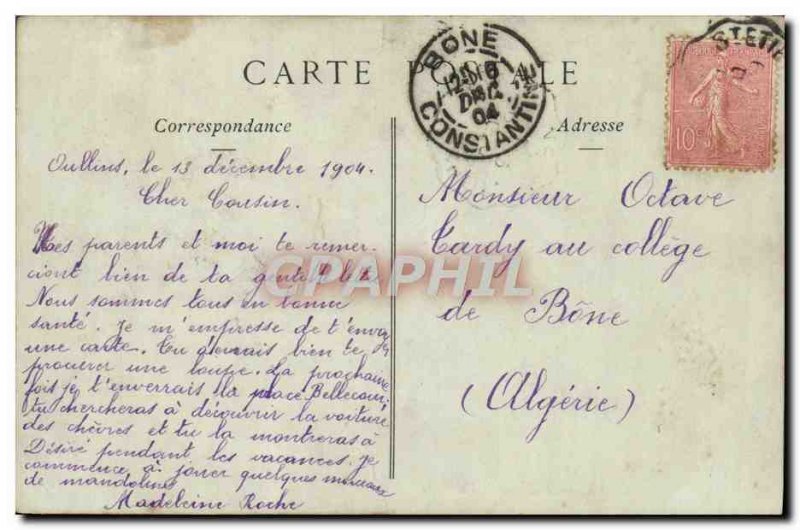 CARTE POSTALE
Correspondance
Adresse
BONE
16
DEC
04
CONSTANTINE
10
Oullins, le 13 décembre 1904.
Cher Cousin.
Mes parents et moi te remer-
cient bien de ta gentille
Nous sommes tous en bonne
santé. Je m'empresse de t'envoyer
une carte. Tu devrais bien te
procurer une loupe. La prochaine
fois je t'enverrais la place Bellecour,
tu chercheras à découvrir la voiture
des chèvres et tu la montreras à
Désiré pendant les vacances. Je
commence à jouer quelques morceaux
de mandoline
Madeleine Roche
Monsieur Octave
Tardy au collège
de Bône
(Algérie)
CPAPHIL